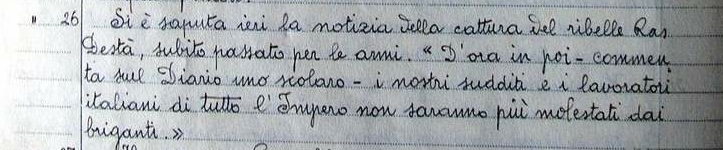 " 26 Si è saputa ieri la notizia della cattura del ribelle Ras
Destà, subito passato per le armi. « D'ora in poi - commen
ta sul Diario uno scolaro - i nostri sudditi e i lavoratori
italiani di tutto l'Impero non saranno più molestati dai
briganti. »